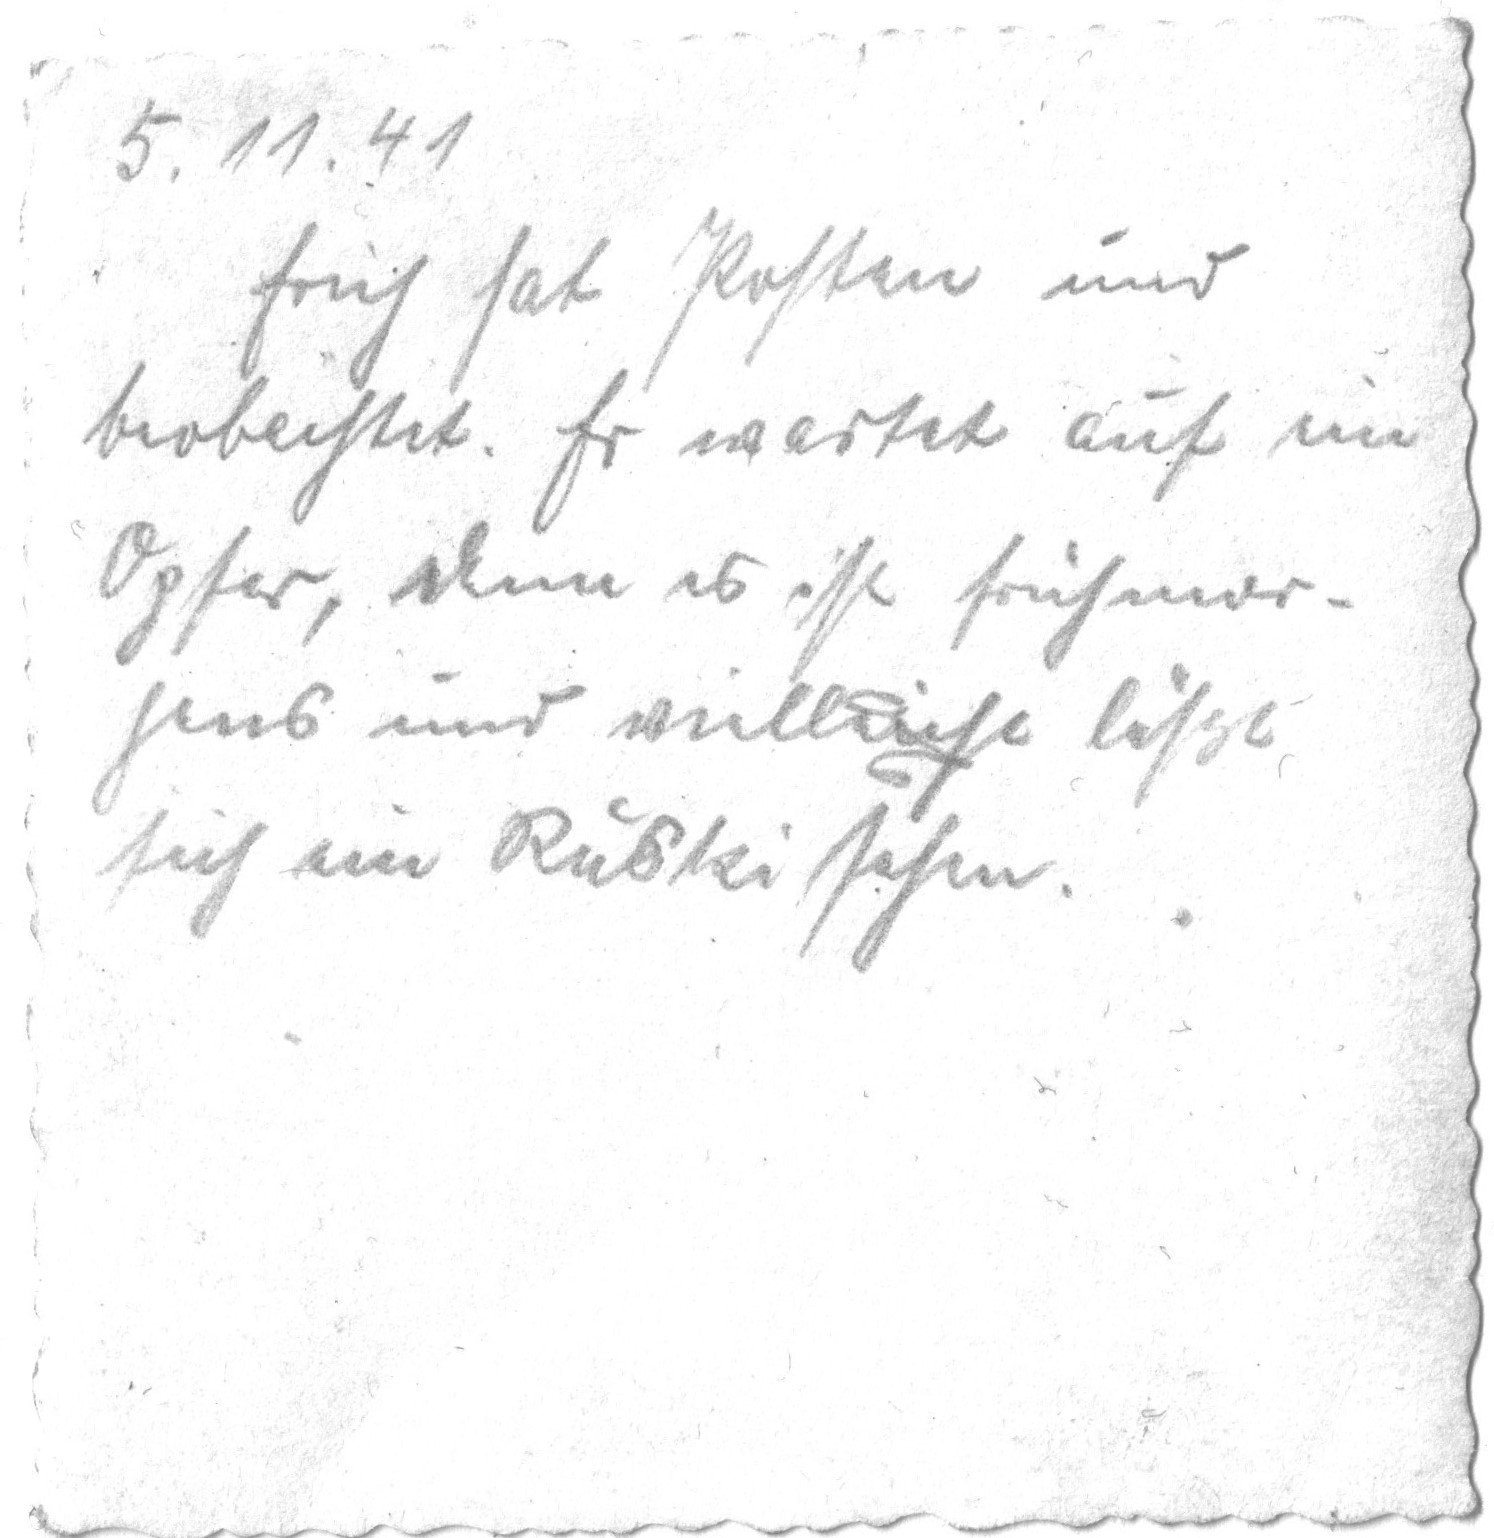 5. 11. 41
Erich hat Posten und
beobachtet. Er wartet auf ein
Opfer, denn es ist frühmor-
gens und vielleicht läßt
sich ein Ruski sehen.